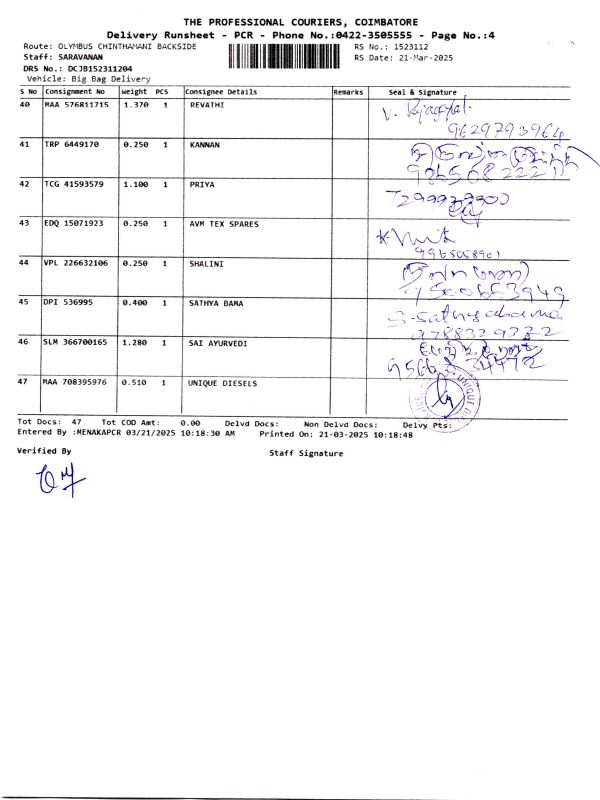 THE PROFESSIONAL COURIERS, COIMBATORE
Delivery Runsheet - PCR - Phone No.:0422-3505555 - Page No.:4
Route: OLYMBUS CHINTHAMANI BACKSIDE RS No.: 1523112
Staff: SARAVANAN RS Date: 21-Mar-2025
DRS No.: DCJB152311204
Vehicle: Big Bag Delivery
S No Consignment No Weight PCS Consignee Details Remarks Seal & Signature
40 MAA 576811715 1.370 1 REVATHI
9629793964
41 TRP 6449170 0.250 1 KANNAN
42 TCG 41593579 1.100 1 PRIYA
43 EDQ 15071923 0.250 1 AVM TEX SPARES
9965058901
44 VPL 226632106 0.250 1 SHALINI
45 DPI 536995 0.400 1 SATHYA BAMA
46 SLM 366700165 1.280 1 SAI AYURVEDI
47 MAA 708395976 0.510 1 UNIQUE DIESELS
UNIQUE
Tot Docs: 47 Tot COD Amt: 0.00 Delvd Docs: Non Delvd Docs: Delvy Pts:
Entered By :MENAKAPCR 03/21/2025 10:18:30 AM Printed On: 21-03-2025 10:18:48
Verified By Staff Signature